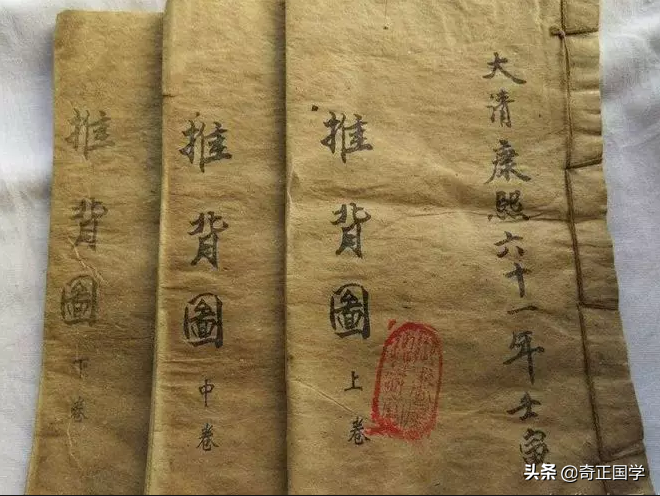 大清康熙六十一年壬寅
推背圖
上卷
推背圖
中卷
推背圖
下卷
头条 @奇正国学